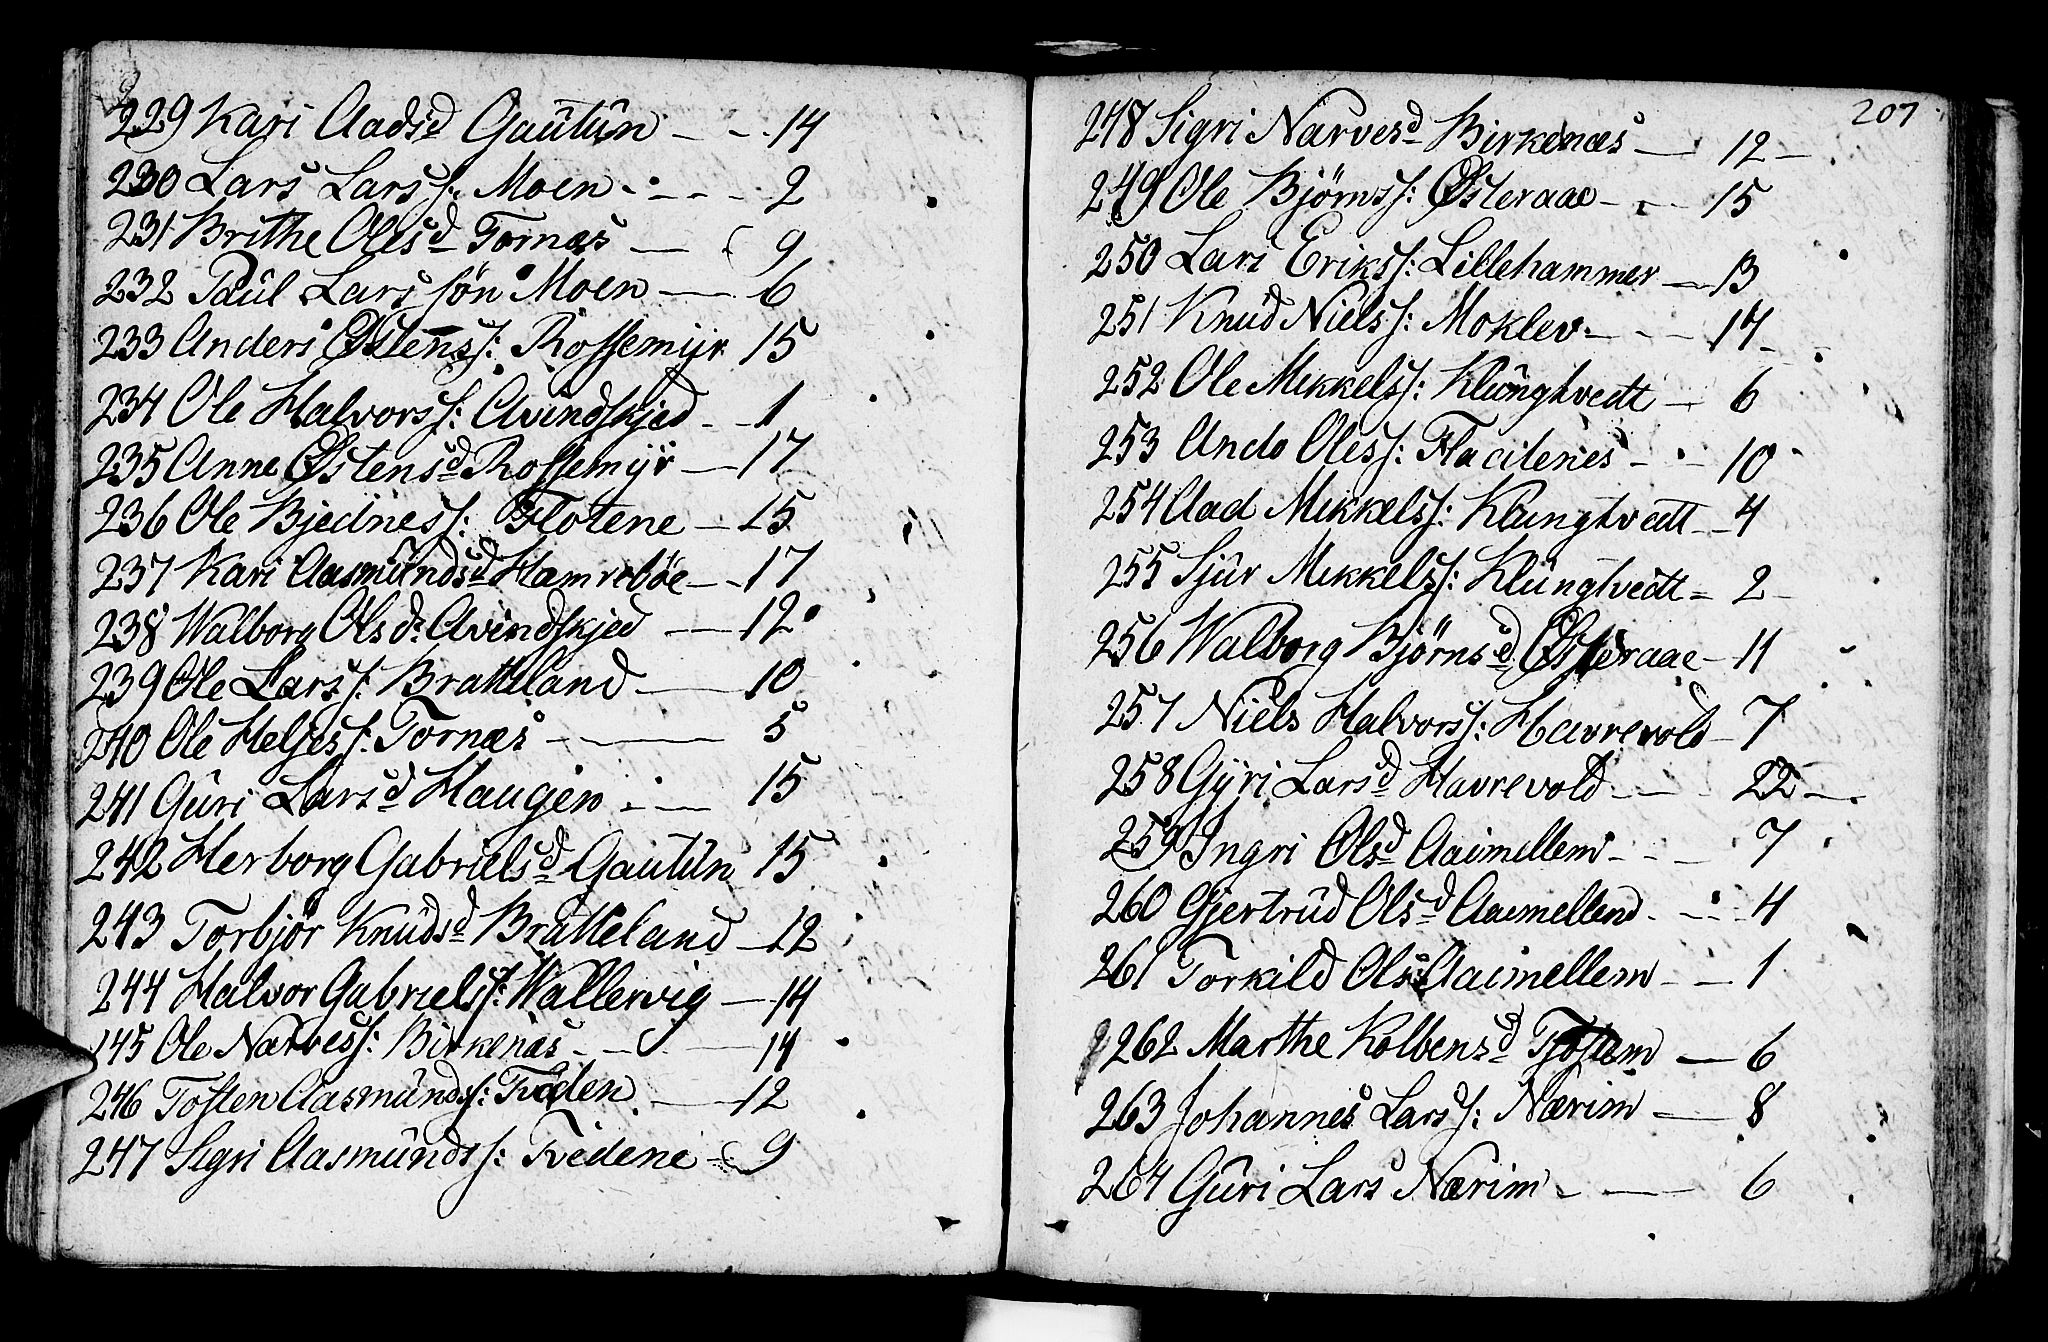 229 Kari Aadsd Gautün - - 14
230 Lars Larss: Moen - - - 2
231 Brithe Olesd Tornæs — 9
232 Paül Larssön Moen — 6
233 Anders Østenss: Rossemyr 15
234 Ole Halvorss: Avindskjed - - 1
235 Anne Østensd Rossemyr — 17
236 Ole Bjedness: Flotene — 15
237 Kari Aasmündsd Hamreböe - - 17
238 Walborg Olsd: Avindskjed — 12
239 Ole Larss: Bratteland — 10
240 Ole Heljess: Tornæs — 5
241 Güri Larsd Haugen - — 15
242 Herborg Gabrielsd Gautün 15
243 Torbjör Knüdsd Bratteland — 12
244 Halvor Gabrielss: Wallervig — 14
145 Ole Narvess: Birkenæs - — 14
246 Tosten Aasmünds: — 12
247 Sigri Aasmündss: Tvedene - 9
207
248 Sigri Narvesd Birkenæs — 12 -
249 Ole Björnss: Østeraae - - 15
250 Lars Erikss: Lillehammer — 13
251 Knüd Nielss: Moklev - - - 17
252 Ole Mikkelss: Klüngtvedt — 6
253 Oless: - - 10
254 Aad Mikkelss: Klüngtvedt - 4
255 Sjür Mikkelss: Klüngtvedt = 2 -
256 Walborg Björnsd Østeraae - 11
257 Niels Halvorss: Havrevold - 7
258 Gyri Larsd Havrevold - - 22 -
259 Ingri Olsd Aaimellem - - - 7
260 Gjertrüd Olsd Aaimellem - - 4
261 Torkild Ols: Aaimellem - - 1
262 Marthe Kolbensd Tjostem — 6
263 Johannes Larss: Nærim — 8
264 Güri Lars Nærim - — 6